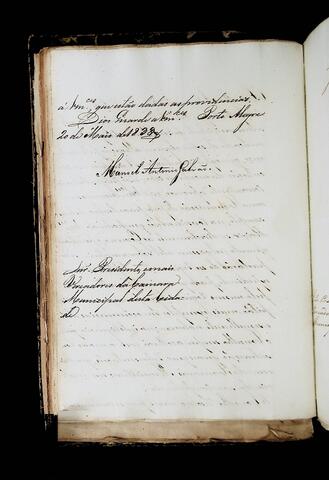 á Vm.ces que estão dadas as providencias.
Deos Guarde a Vm.ces Porto Alegre
20 de Maio de 183
Manoel Antonio Galvão
Snr. Presidente e mais
Vereadores da Camara
Municipal desta Cida-
de